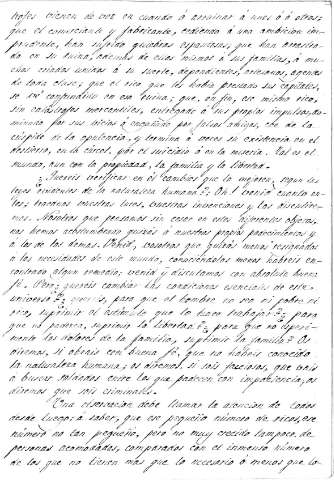 trofes vienen de vez en cuando á arruinar á unos ó á otros;
que el comerciante y fabricante, cediendo á una ambicion im-
prudente, han sufrido quiebras espantosas, que han arrastra-
do en su ruina, además de ellos mismos á sus familias, á mu-
chos criados unidos á su suerte, dependientes, artesanos, agentes
de toda clase; que el rico que les habia prestado sus capitales,
se vé confundido en esa ruina; que, en fin, ese mismo rico,
sin catástrofes mercantiles, entregado á sus propios impulsos,
arruinado por sus vicios ó engañado por falsos amigos, cae de la
cúspide de la opulencia, y termina á veces su existencia en el
destierro, en la cárcel, por el suicidio ó en la miseria. Tal es el
mundo, aun con la propiedad, la familia y la libertad.
¿Quereis verificar en él cambios que lo mejoren, segun las
leyes inmutables de la naturaleza humana? Oh! venid cuanto an-
tes; traednos vuestras luces, vuestras invenciones y las discutire-
mos. Nosotros que pensamos sin cesar en estos diferentes objetos,
nos hemos acostumbrado quizás á nuestros propios padecimientos y
á los de los demas. Venid, vosotros que quizás menos resignados
á las necesidades de este mundo, conociéndolas menos habreis en-
contrado algun remedio; venid y discutamos con absoluta buena
fé. Pero ¿quereis cambiar las condiciones esenciales de este
universo? ¿quereis, para que el hombre no sea ni pobre ni
rico, suprimir el estímulo que lo hace trabajar? ¿para
que no padezca, suprimir la libertad? ¿para que no esperi-
mente los dolores de la familia, suprimir la familia? Os
diremos, si obrais con buena fé, que no habeis conocido
la naturaleza humana; os diremos, si sois facciosos, que vais
á buscar soldados entre los que padecen con impaciencia, os
diremos que sois criminales.
Una observacion debe llamar la atencion de todos
desde luego: á saber, que ese pequeño número de ricos, ese
número no tan pequeño, pero no muy crecido tampoco, de
personas acomodadas, comparados con el inmenso número
de los que no tienen mas que lo necesario ó menos que lo